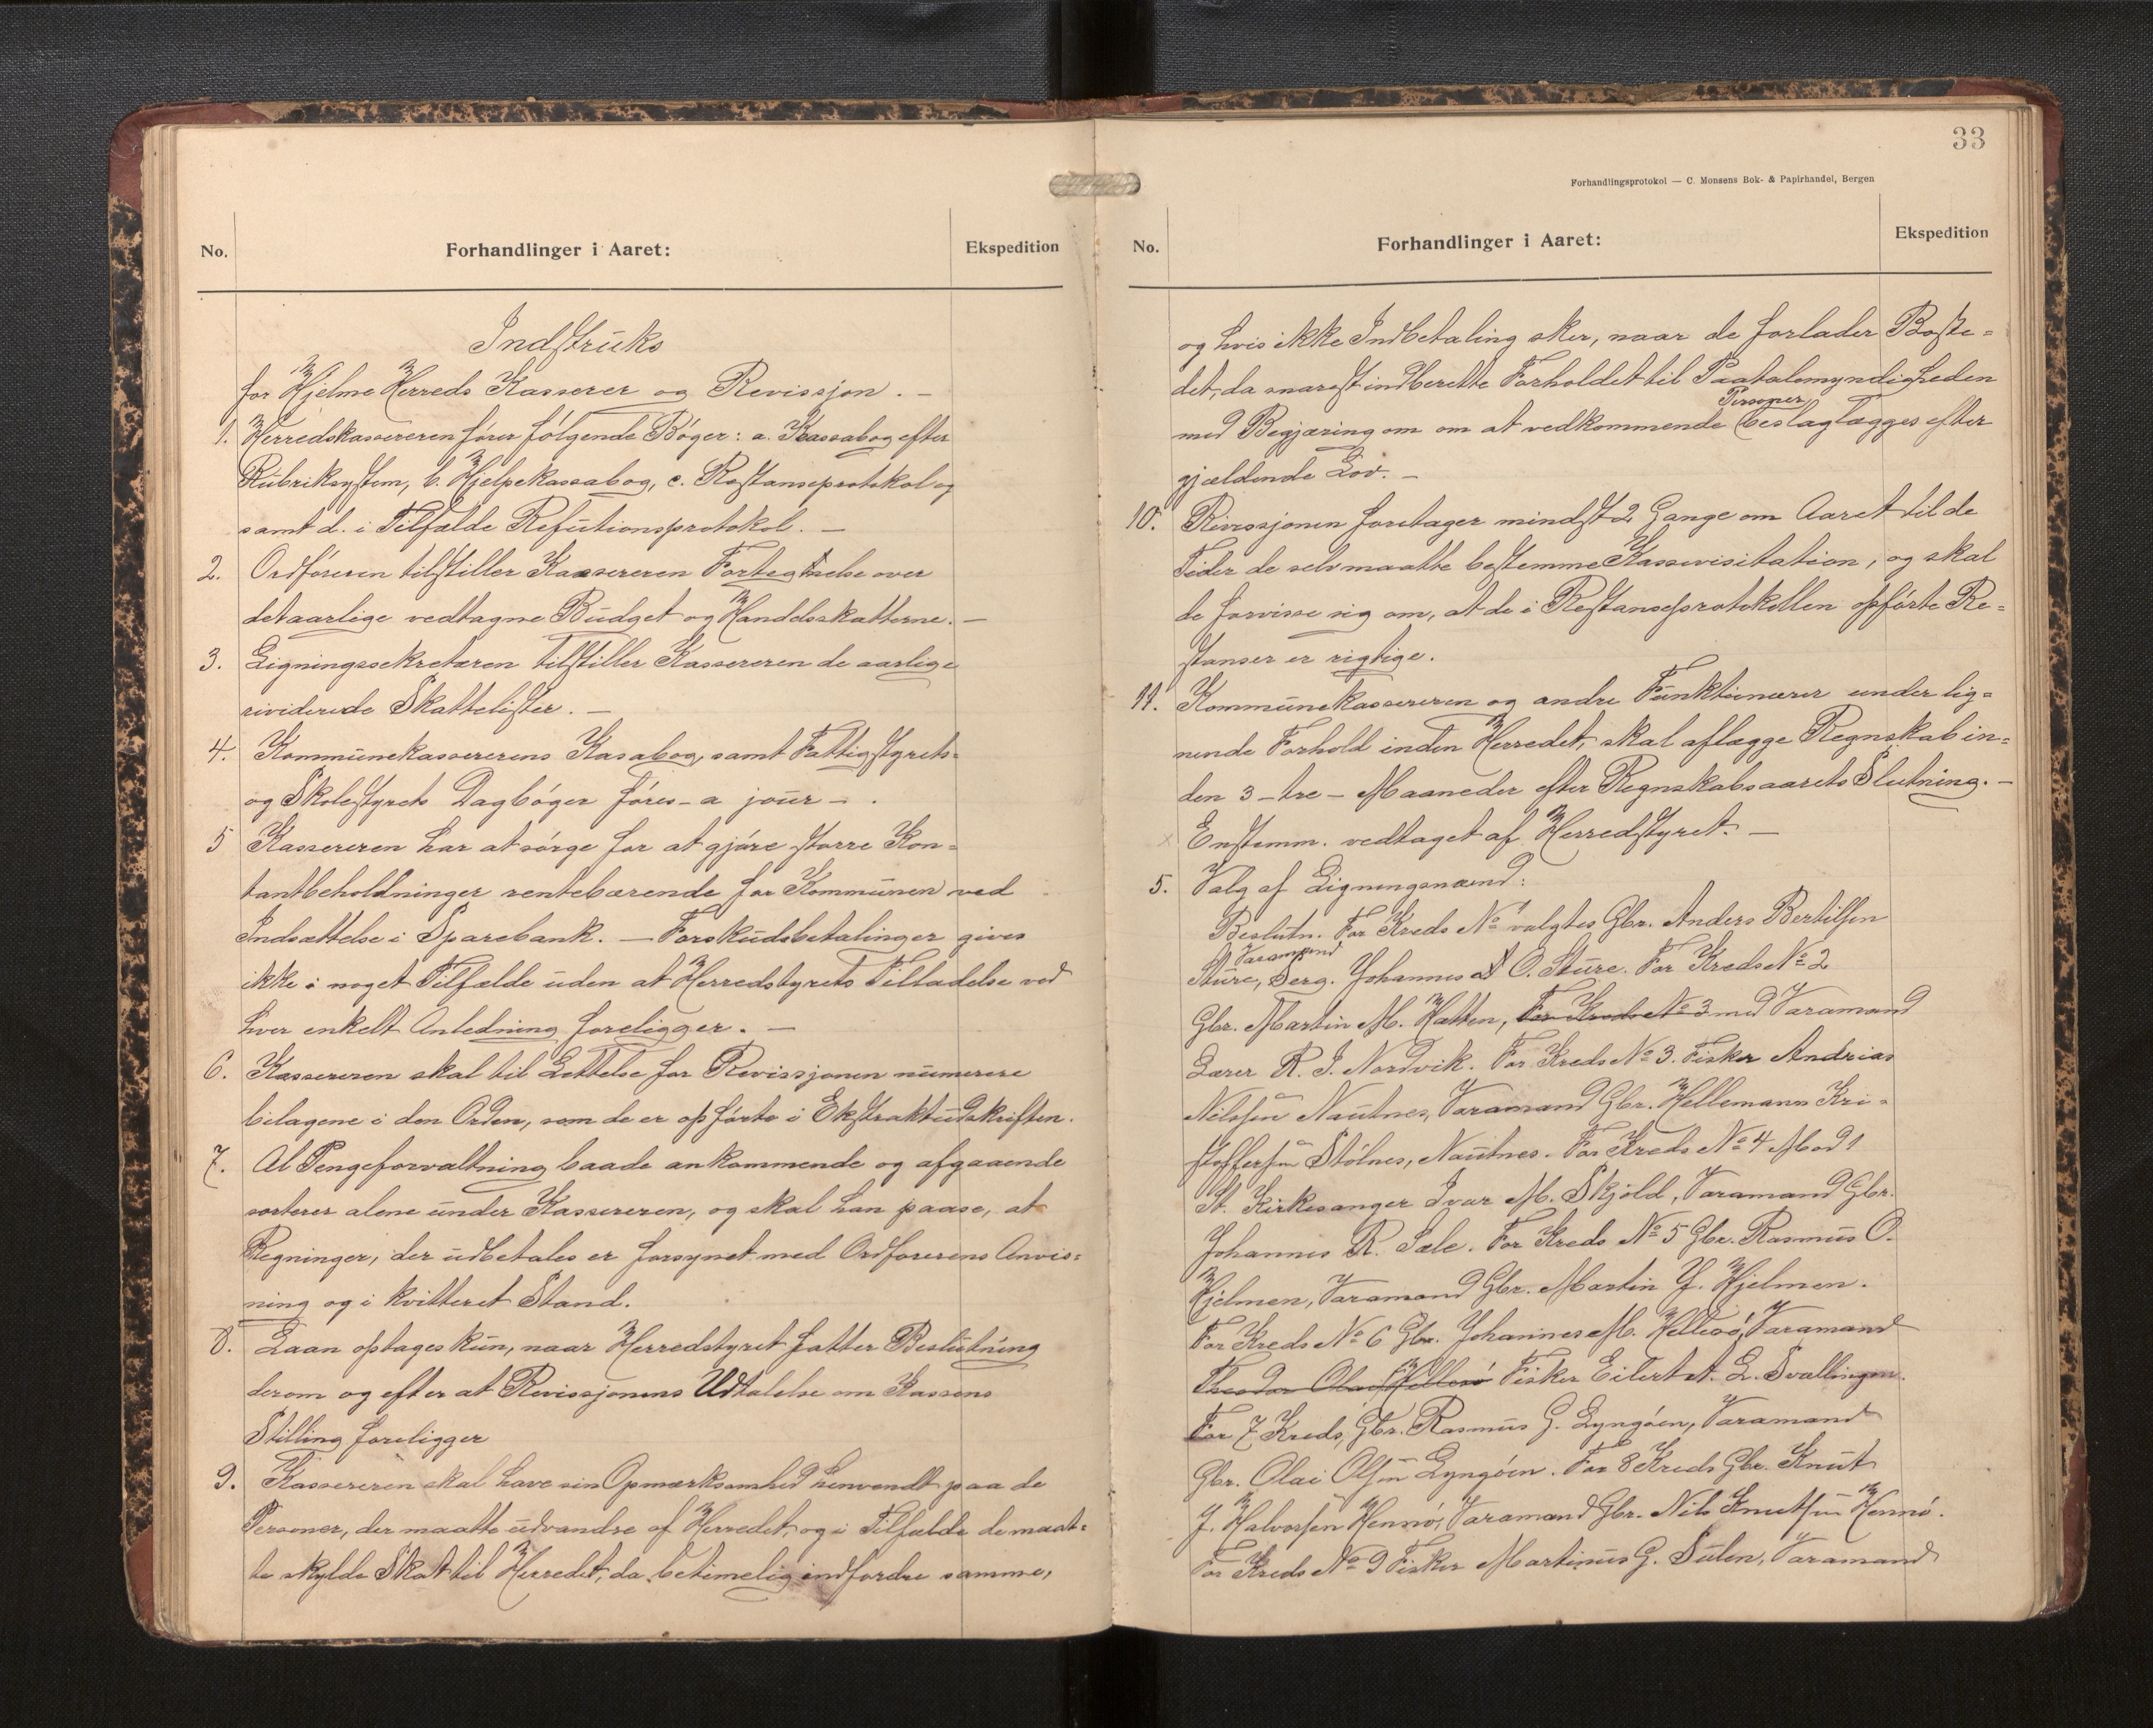 No. Forhandlinger i Aaret: Ekspedition
Indstruks
for Hjelme Herreds Kasserer og Revissjon. —
1. Herredskassereren fører følgende Bøger: a. Kassabog efter
Rubriksystem, b. Hjelpekassabog, c. Restanseprotokol og
samt d. i Tilfælde Refutionsprotokol. —
2. Ordføreren tilstiller Kassereren Fortegnelse over
det aarlige vedtagne Budget og Handelsskatterne. —
3. Ligningssekretæren tilstiller Kassereren de aarlige
rividerede Skattelister. —
4. Kommunekassererens Kasabog, samt Fattigstyrets-
og Skolestyrets Dagbøger føres - a jour - .
5 Kassereren har at sørge for at gjøre større Kon=
tantbeholdninger rentebærende for Kommunen ved
Indsættelse i Sparebank. — Forskudsbetalinger gives
ikke i noget Tilfælde uden at Herredstyrets Tilladelse ved
hver enkelt Anledning foreligger. —
6. Kassereren skal til Lettelse for Revissjonen numerere
bilagene i den Orden, som de er opførte i Ekstraktudskriften.
7. Al Pengeforvaltning baade ankommende og afgaaende
sorterer alene under Kassereren, og skal han paase, at
Regninger, der udbetales er forsynet med Ordførerens Anvis=
ning og i kvitteret Stand.
8. Laan optages kun, naar Herredstyret fatter Beslutning
derom og efter at Revissjonens Udtalelse om Kassens
Stilling foreligger
9. Kassereren skal have sin Opmærksomhed henvendt paa de
Personer, der maatte udvandre af Herredet, og i Tilfælde de maat=
te skylde Skat til Herredet, da betimelig indfordre samme,
33
Forhandlingsprotokol — C. Monsens Bok- & Papirhandel, Bergen
No. Forhandlinger i Aaret: Ekspedition
og hvis ikke Indbetaling sker, naar de forlader Boste=
det, da snarest indberette Forholdet til Paatalemyndigheden
Personer
med Begjæring om om at vedkommende beslaglægges efter
gjældende Lov. —
10. Rivissjonen foretager mindst 2 Gange om Aaret til de
Tider de selv maatte bestemme Kassevisitation, og skal
de forvisse sig om, at de i Restanseprotokollen opførte Re=
stanser er rigtige.
11. Kommunekassereren og andre Funktionærer under lig=
nende Forhold inden Herredet, skal aflægge Regnskab in=
den 3 - tre - Maaneder efter Regnskabsaarets Slutning. —
x Enstemm. vedtaget af Herredstyret. —
5. Valg af Ligningsnævnd:
Beslutn. For Kreds No 1 valgtes Gbr. Anders Bertilsen
Varamand
Sture, Serg. Johannes O. Sture. For Kreds No 2
Gbr. Martin M. Hatten, For Kreds No 3 med Varamand
Lærer R. J. Nordvik. For Kreds No 3. Fisker Andrias
Nilssen Nautnes, Varamand Gbr. Hellemann Kri=
stoffersen Stølnes, Nautnes. For Kreds No 4 Mod 1
St. Kirkesanger Ivar M. Skjold, Varamand Gbr.
Johannes R. Sæle. For Kreds No 5 Gbr. Rasmus O.
Hjelmen, Varamand Gbr. Martin J. Hjelmen.
For Kreds No 6 Gbr. Johannes M. Hellesø, Varamand
Theodor Olai Hellesø Fisker Eilert A. L. Svellingen.
For 7 Kreds, Gbr. Rasmus G. Lyngøen, Varamand
Gbr. Olai Olsen Lyngøen. For 8 Kreds Gbr. Knut
J. Halvorsen Hennø, Varamand Gbr. Nils Knutsen Hennø.
For Kreds No 9 Fisker Martinus G. Sulen, Varamand